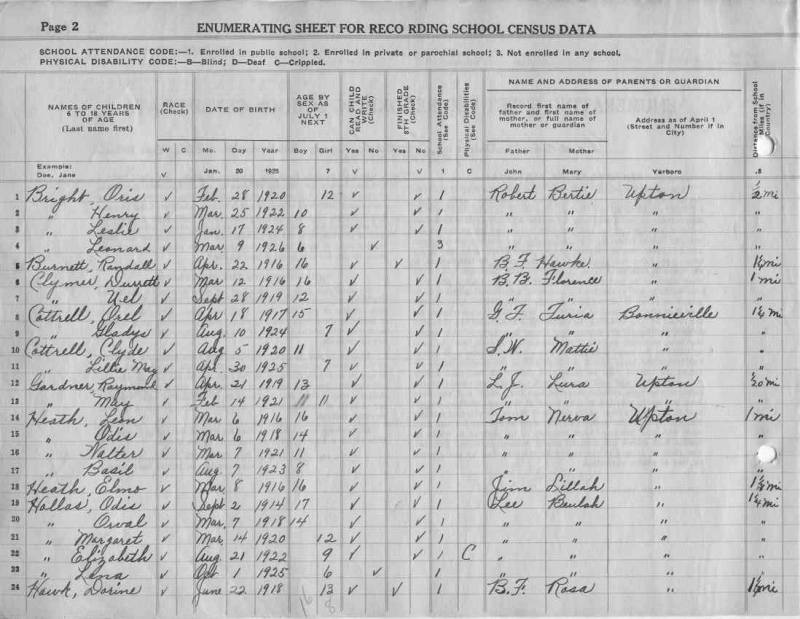 Page 2 ENUMERATING SHEET FOR RECO RDING SCHOOL CENSUS DATA
SCHOOL ATTENDANCE CODE:—1. Enrolled in public school; 2. Enrolled in private or parochial school; 3. Not enrolled in any school.
PHYSICAL DISABILITY CODE:—B—Blind; D—Deaf C—Crippled.
NAMES OF CHILDREN 6 TO 18 YEARS OF AGE (Last name first) RACE (Check) DATE OF BIRTH AGE BY SEX AS OF JULY 1 NEXT CAN CHILD READ AND WRITE (Check) FINISHED 8TH GRADE (Check) School Attendance (See Code) Physical Disabilities (See Code) NAME AND ADDRESS OF PARENTS OR GUARDIAN Distance from School Miles (if in Country)
Record first name of father and first name of mother, or full name of mother or guardian Address as of April 1 (Street and Number if in City)
W C Mo. Day Year Boy Girl Yes No Yes No Father Mother
Example: Doe, Jane V Jan. 20 1925 7 V V 1 C John Mary Yarboro .8
1 Bright, Oris ✓ Feb. 28 1920 12 ✓ ✓ 1 Robert Bertie Upton ½ mi
2 " Henry ✓ Mar. 25 1922 10 ✓ ✓ 1 " " " "
3 " Leslie ✓ Jan. 17 1924 8 ✓ ✓ 1 " " " "
4 " Leonard ✓ Mar 9 1926 6 ✓ 3 " " " "
5 Burnett, Randall ✓ Apr. 22 1916 16 ✓ ✓ 1 B.F. Hawke " 1½ mi
6 Clymer, Durrett ✓ Mar 12 1916 16 ✓ ✓ 1 B.B. Florence " 1 mi
7 " Uel ✓ Sept 28 1919 12 ✓ ✓ 1 " " " "
8 Cottrell, Orel ✓ Apr 18 1917 15 ✓ ✓ 1 G.F. Turia Bonnieville 1¼ mi
9 " Gladys ✓ Aug. 10 1924 7 ✓ ✓ 1 " " " "
10 Cottrell, Clyde ✓ Aug 5 1920 11 ✓ ✓ 1 S.W. Mattie " "
11 " Lillie May ✓ Apr. 30 1925 7 ✓ ✓ 1 " " " "
12 Gardner, Raymond ✓ Apr. 21 1919 13 ✓ ✓ 1 L.J. Lura Upton mi
13 " May ✓ Feb 14 1921 11 ✓ ✓ 1 " " " "
14 Heath, Leon ✓ Mar 6 1916 16 ✓ ✓ 1 Tom Nerva Upton 1 mi
15 " Odis ✓ Mar. 6 1918 14 ✓ ✓ 1 " " " "
16 " Walter ✓ Mar 7 1921 11 ✓ ✓ 1 " " "
17 " Basil ✓ Aug. 7 1923 8 ✓ ✓ 1 " " " "
18 Heath, Elmo ✓ Mar 8 1916 16 ✓ ✓ 1 Jim Dillah " mi
19 Hallas, Odis ✓ Sept 2 1914 17 ✓ ✓ 1 Lee Beulah " 1¼ mi
20 " Orval ✓ Mar, 7 1918 14 ✓ ✓ 1 " " " "
21 " Margaret ✓ Mar. 14 1920 12 ✓ ✓ 1 " " " "
22 " Elizabeth ✓ Aug. 21 1922 9 ✓ ✓ 1 C " " " "
23 " Lena ✓ Oct 1 1925 6 ✓ 1 " " " "
24 Hawk, Dorine ✓ June 22 1918 13 ✓ ✓ 1 B.F. Rosa " 1½ mi
16 8